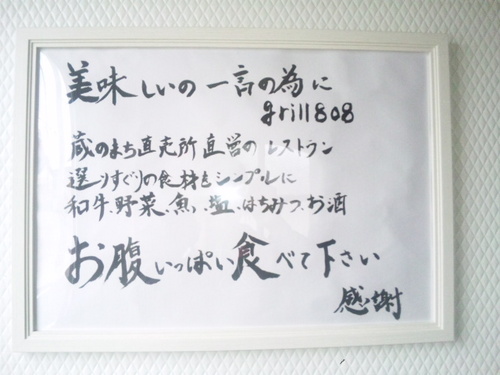 美味しいの一言の為に
grill808
蔵のまち直売所直営のレストラン
選りすぐりの食材をシンプルに
和牛、野菜、魚、塩、はちみつ、お酒
お腹いっぱい食べて下さい
感謝